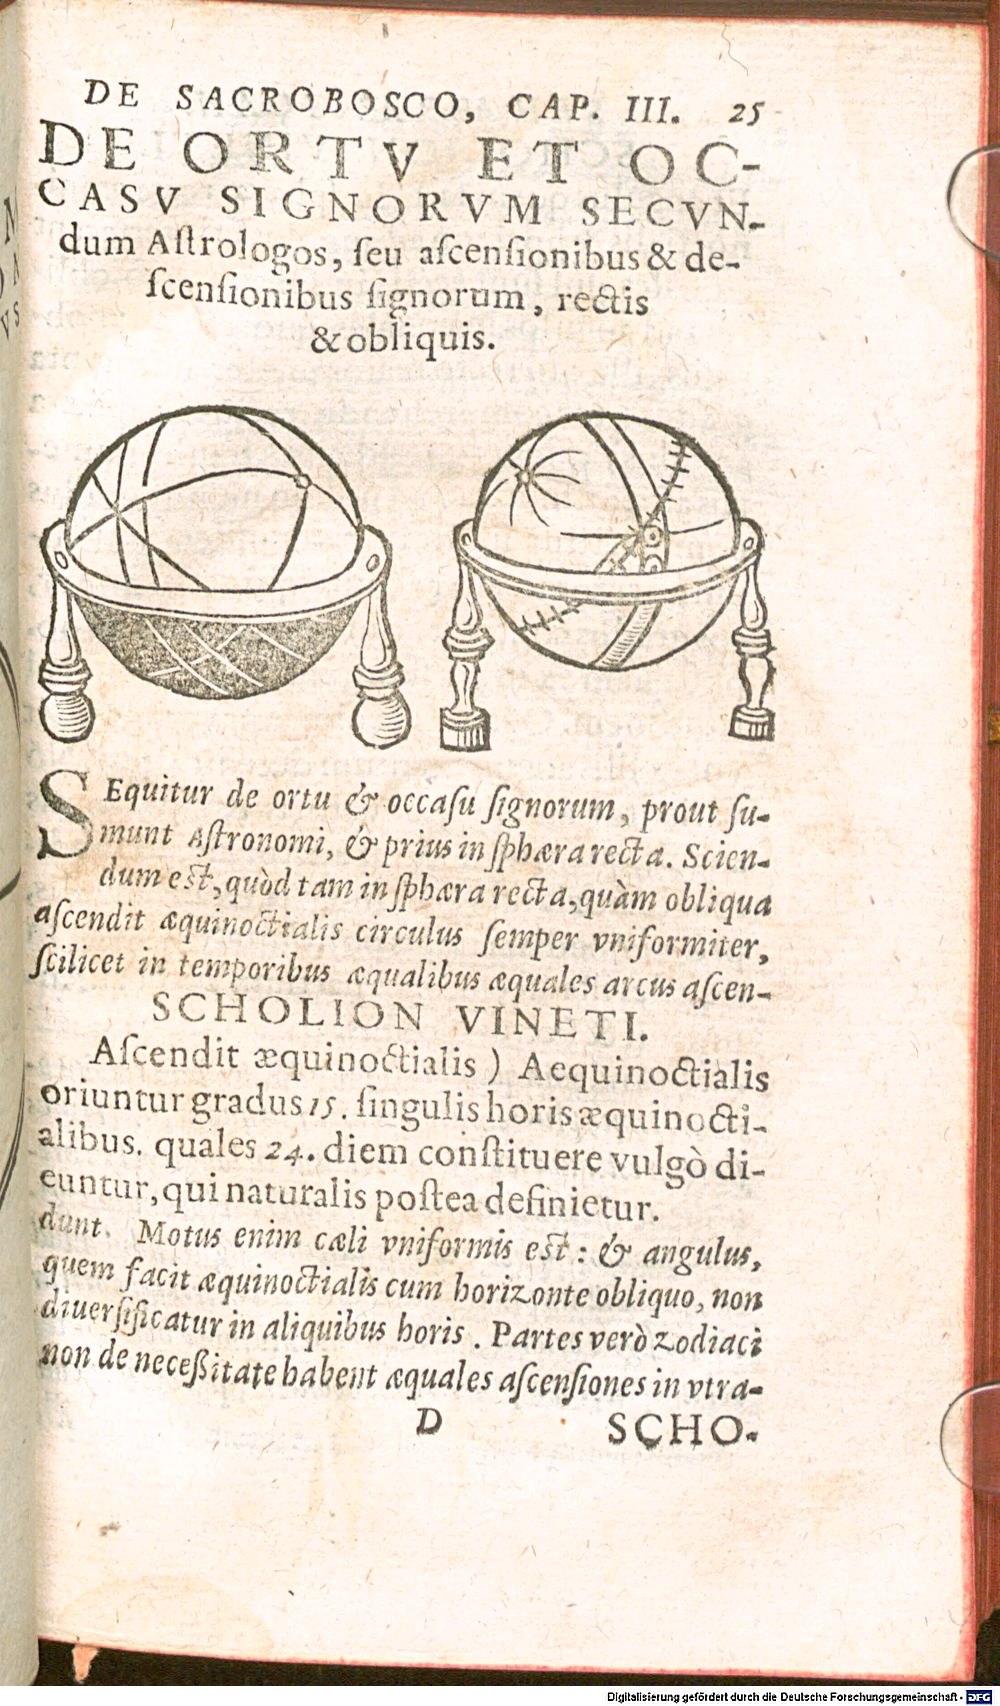 DE SACROBOSCO, CAP. III. 25
DE ORTV ET OC-
CASV SIGNORVM SECVN-
dum Aſtrologos, ſeu aſcenſionibus & de-
ſcenſionibus ſignorum, rectis
& obliquis.
SEquitur de ortu & occaſu ſignorum, prout ſu-
munt Aſtronomi, & prius in ſphæra recta. Scien-
dum eſt, quòd tam in ſphæra recta, quàm obliqua
aſcendit æquinoctialis circulus ſemper vniformiter,
ſcilicet in temporibus æqualibus æquales arcus aſcen-
SCHOLION VINETI.
Aſcendit æquinoctialis ) Aequinoctialis
oriuntur gradus 15. ſingulis horis æquinocti-
alibus. quales 24. diem conſtituere vulgò di-
cuntur, qui naturalis poſtea definietur.
dunt. Motus enim cæli vniformis eſt: & angulus,
quem facit æquinoctialis cum horizonte obliquo, non
diuerſificatur in aliquibus horis. Partes verò zodiaci
non de neceßitate habent æquales aſcenſiones in vtra-
D SCHO-
Digitalisierung gefördert durch die Deutsche Forschungsgemeinschaft - DFG